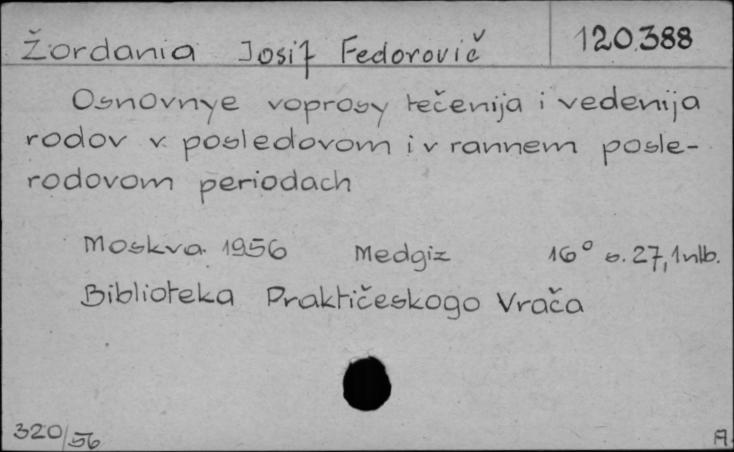 Žordania Josif Fedorovič 120.388
Osnovnye voprosy tečenija i vedenija
rodov v posledovom i v rannem posle-
rodovom periodach
Moskva 1956 Medgiz 16° s. 27, 1 nlb.
Biblioteka Praktičeskogo Vrača
320/56 A.